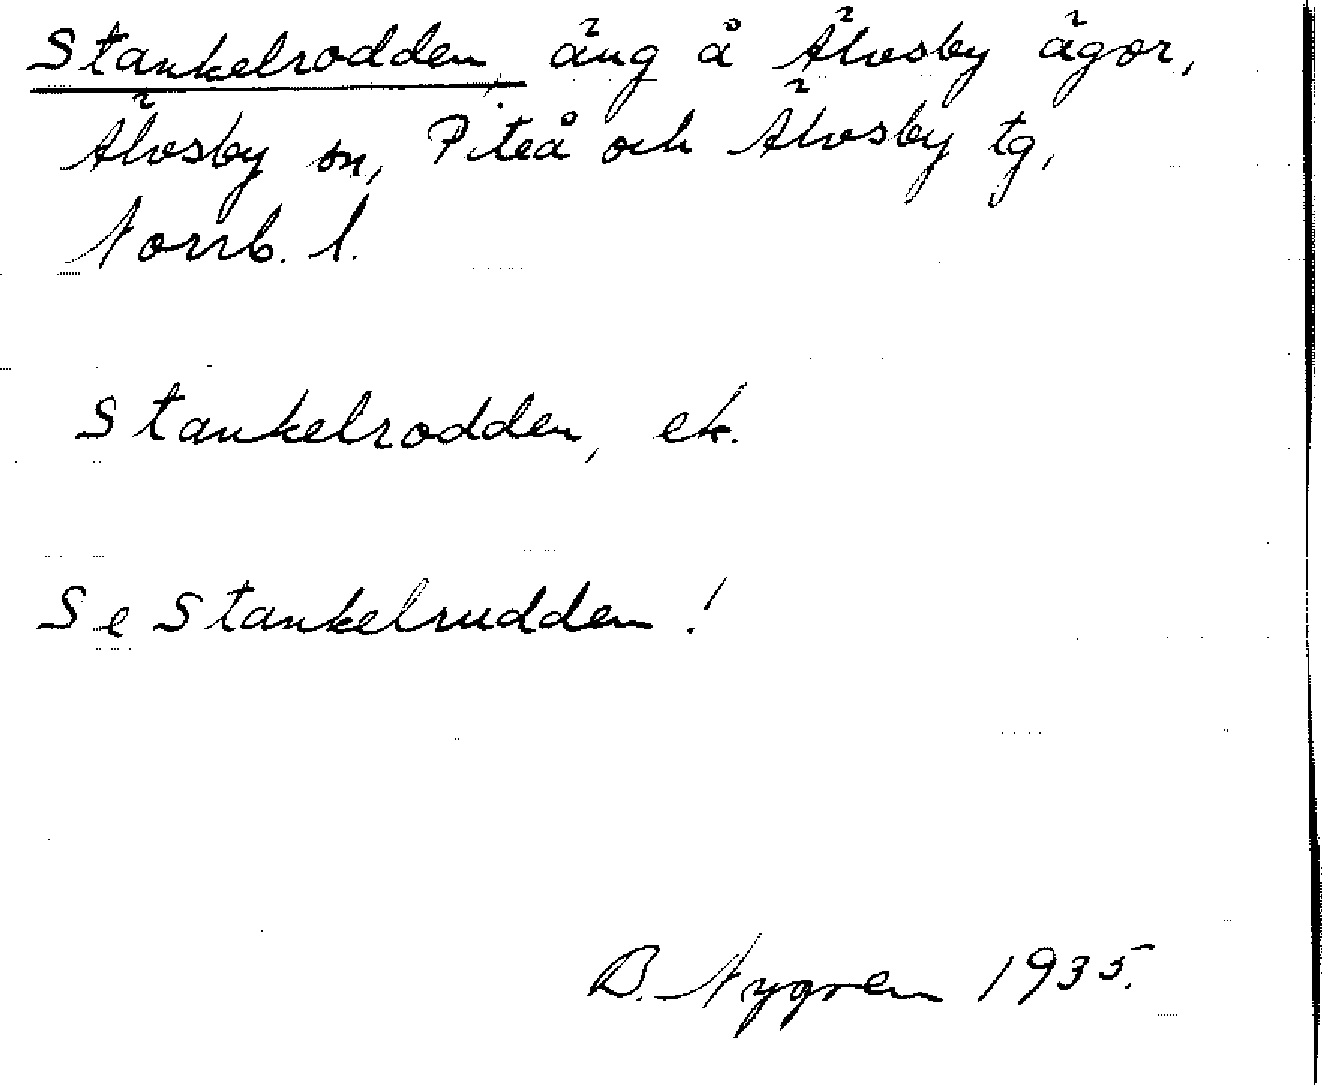 Stankelrodden, äng å Älvsby ägor,
Älvsby sn, Piteå och Älvsby tg,
Norrb. l.
Stankelrodden, ek.
Se Stankelrudden!
B. Nygren 1935.